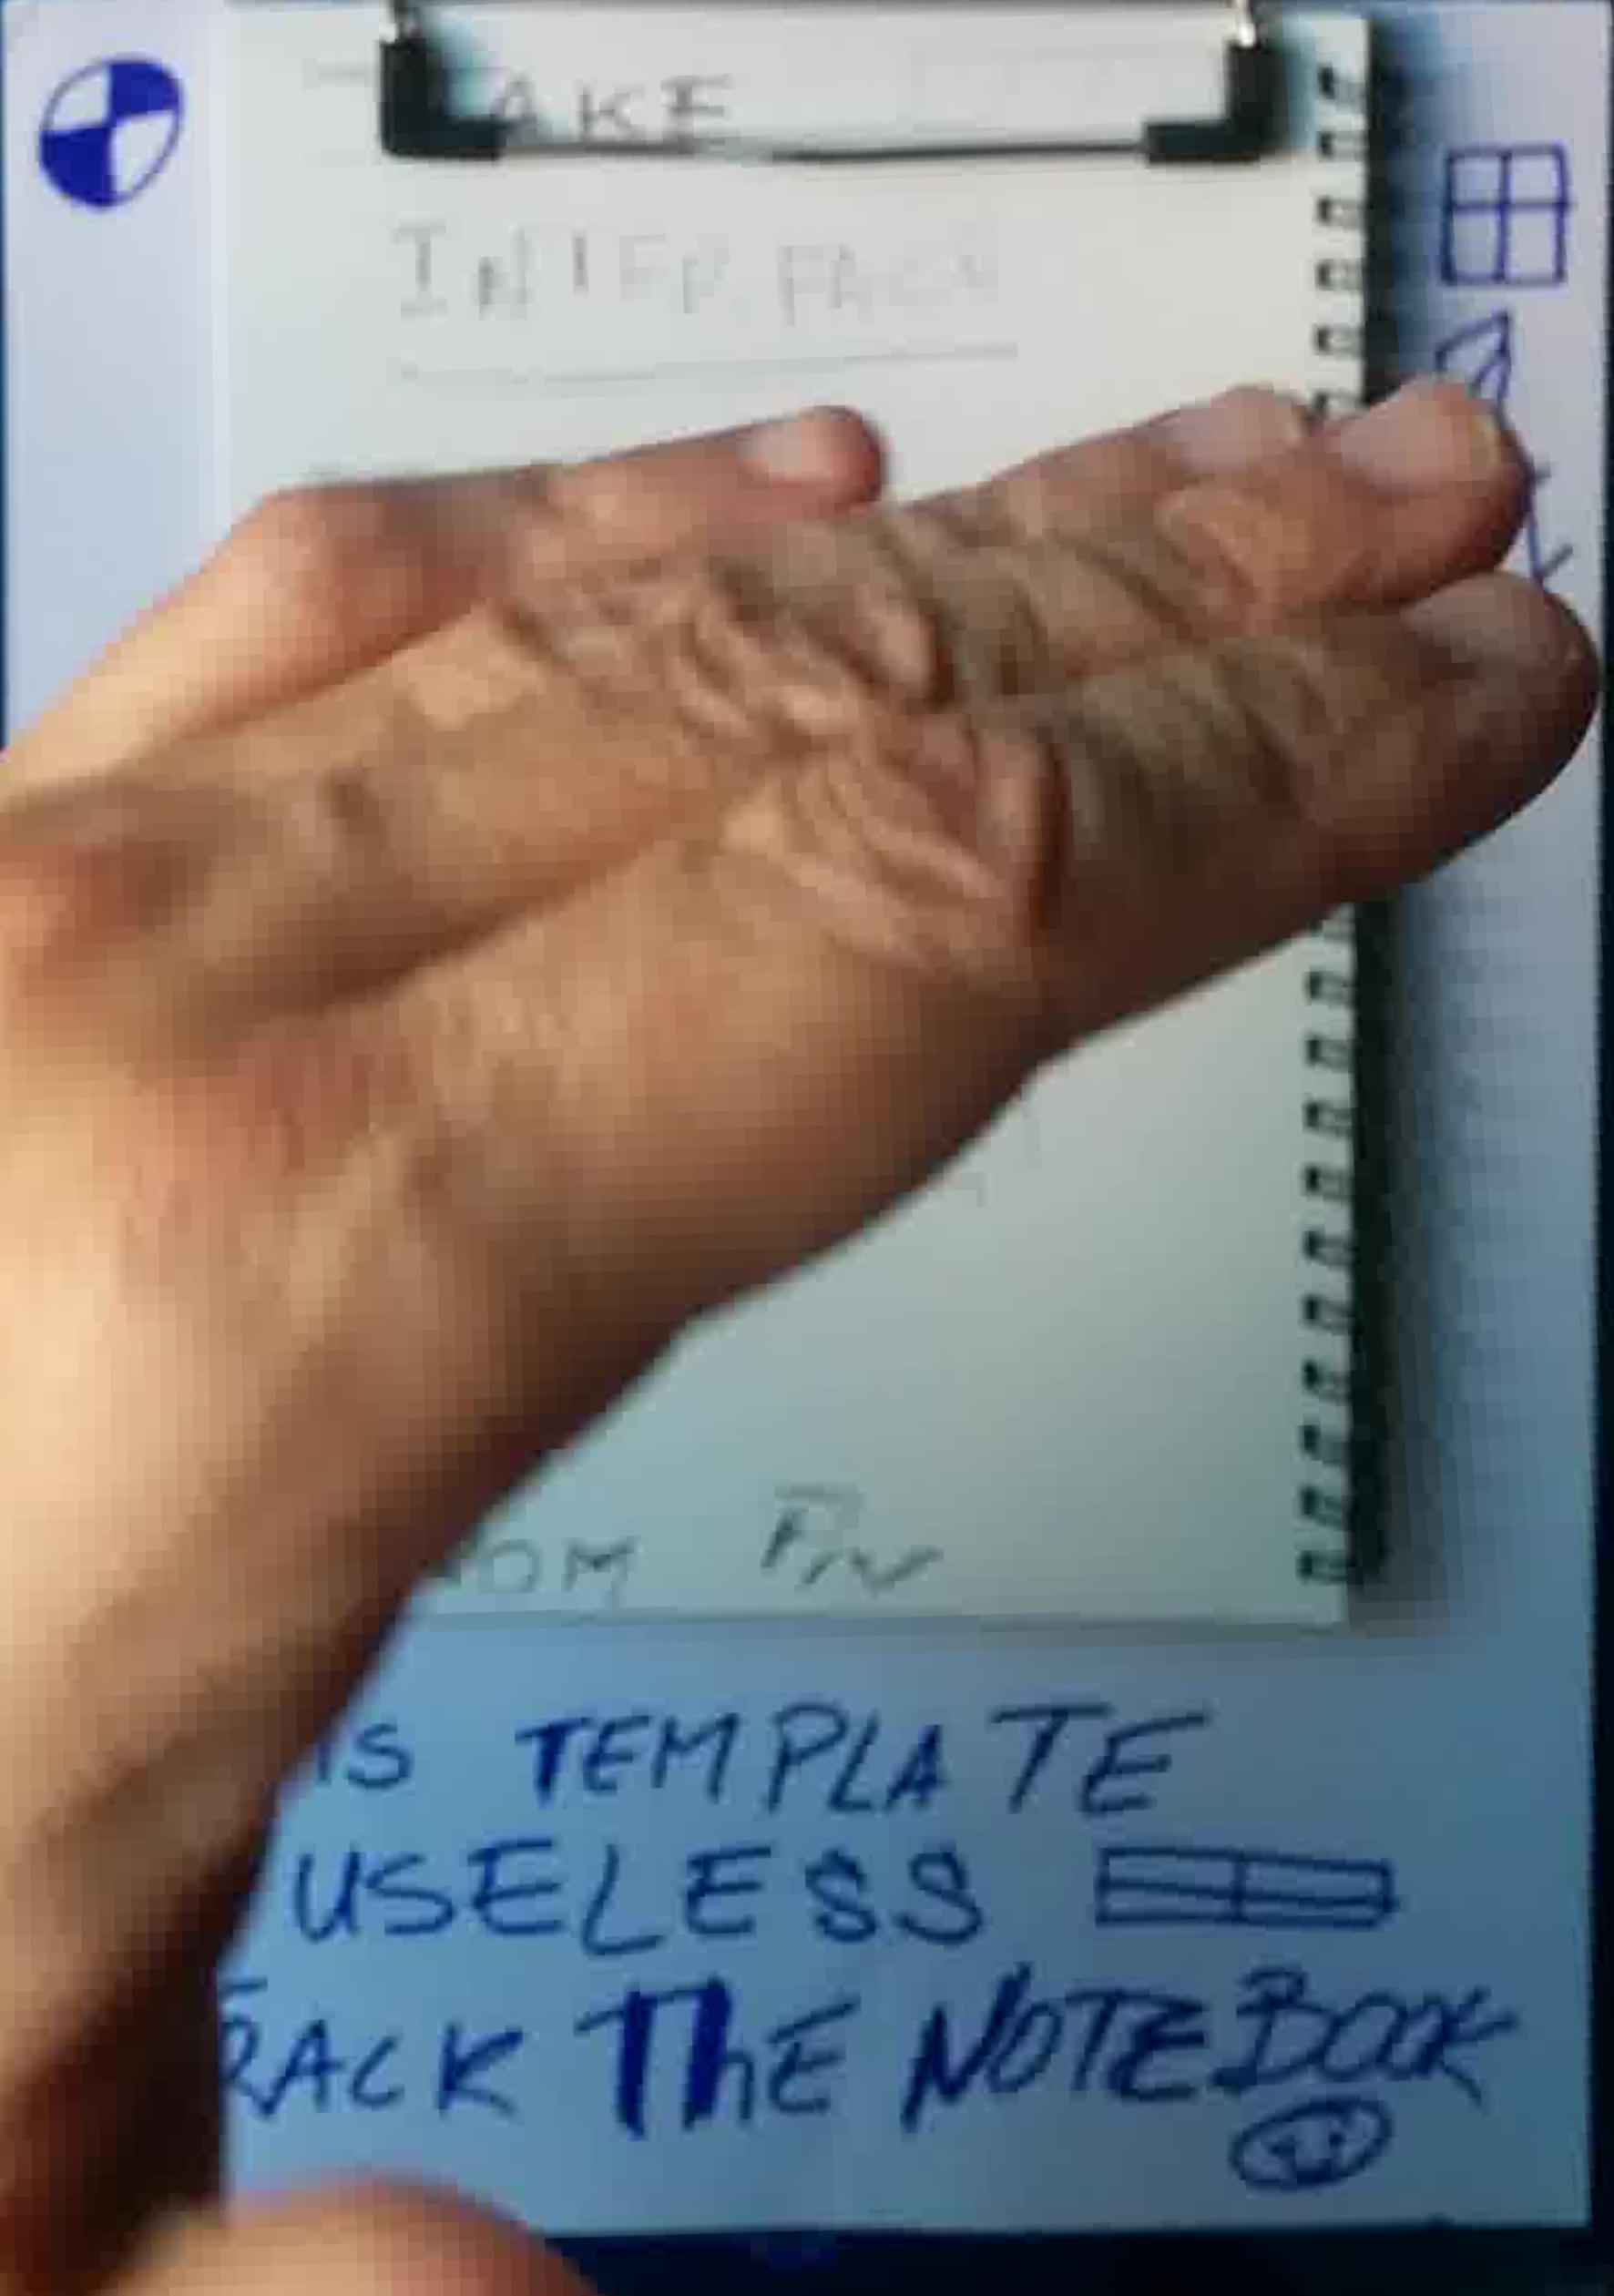 AKE
INTERFACE
OM
IS TEMPLATE
USELESS
RACK ThE NOTEBOOK